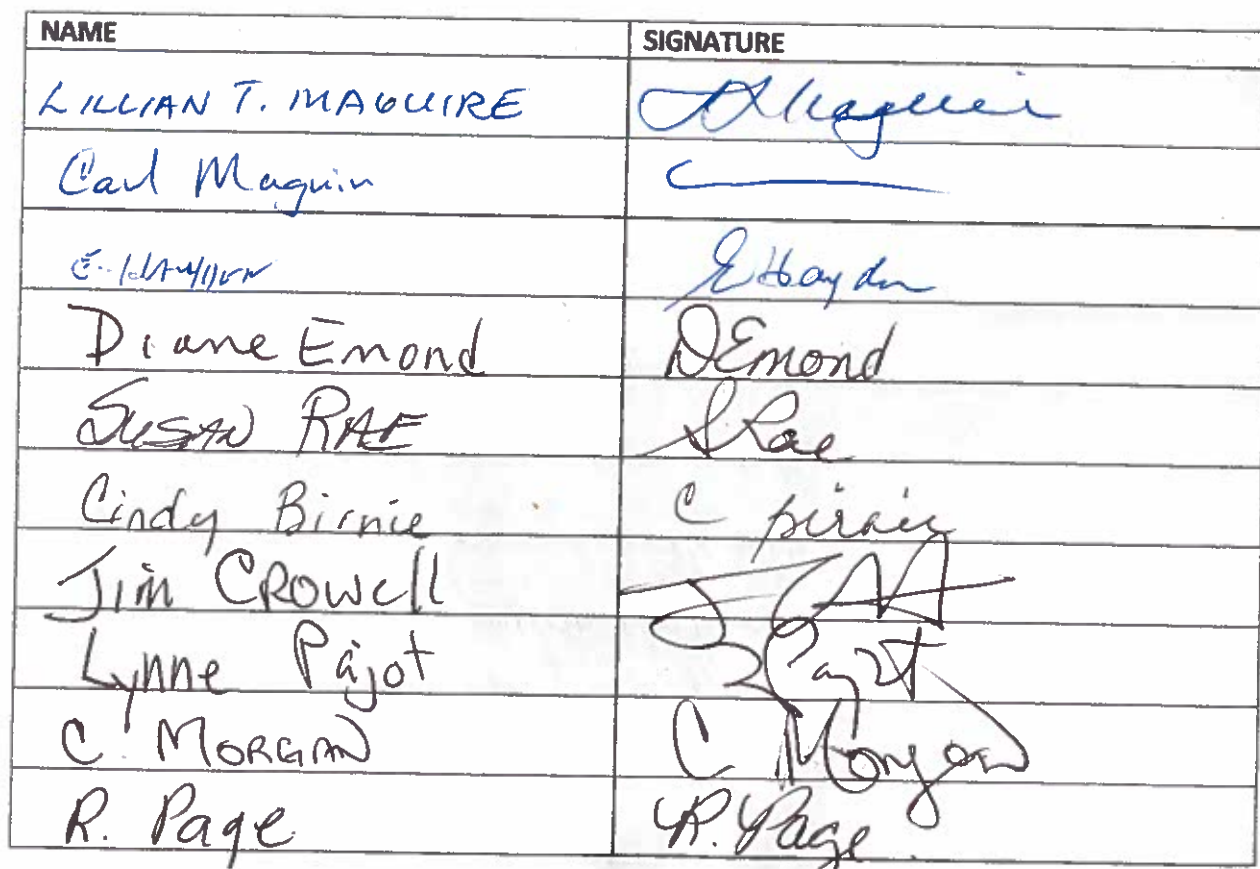 NAME SIGNATURE
LILLIAN T. MAGUIRE
Carl Maguire
E. HAYDEN EHayden
Diane Emond DEmond
SUSAN RAE SRae
Cindy Birnie C Birnie
Jim CROWELL
Lynne Pajot LPajot
C. MORGAN C Morgan
R. Page R. Page